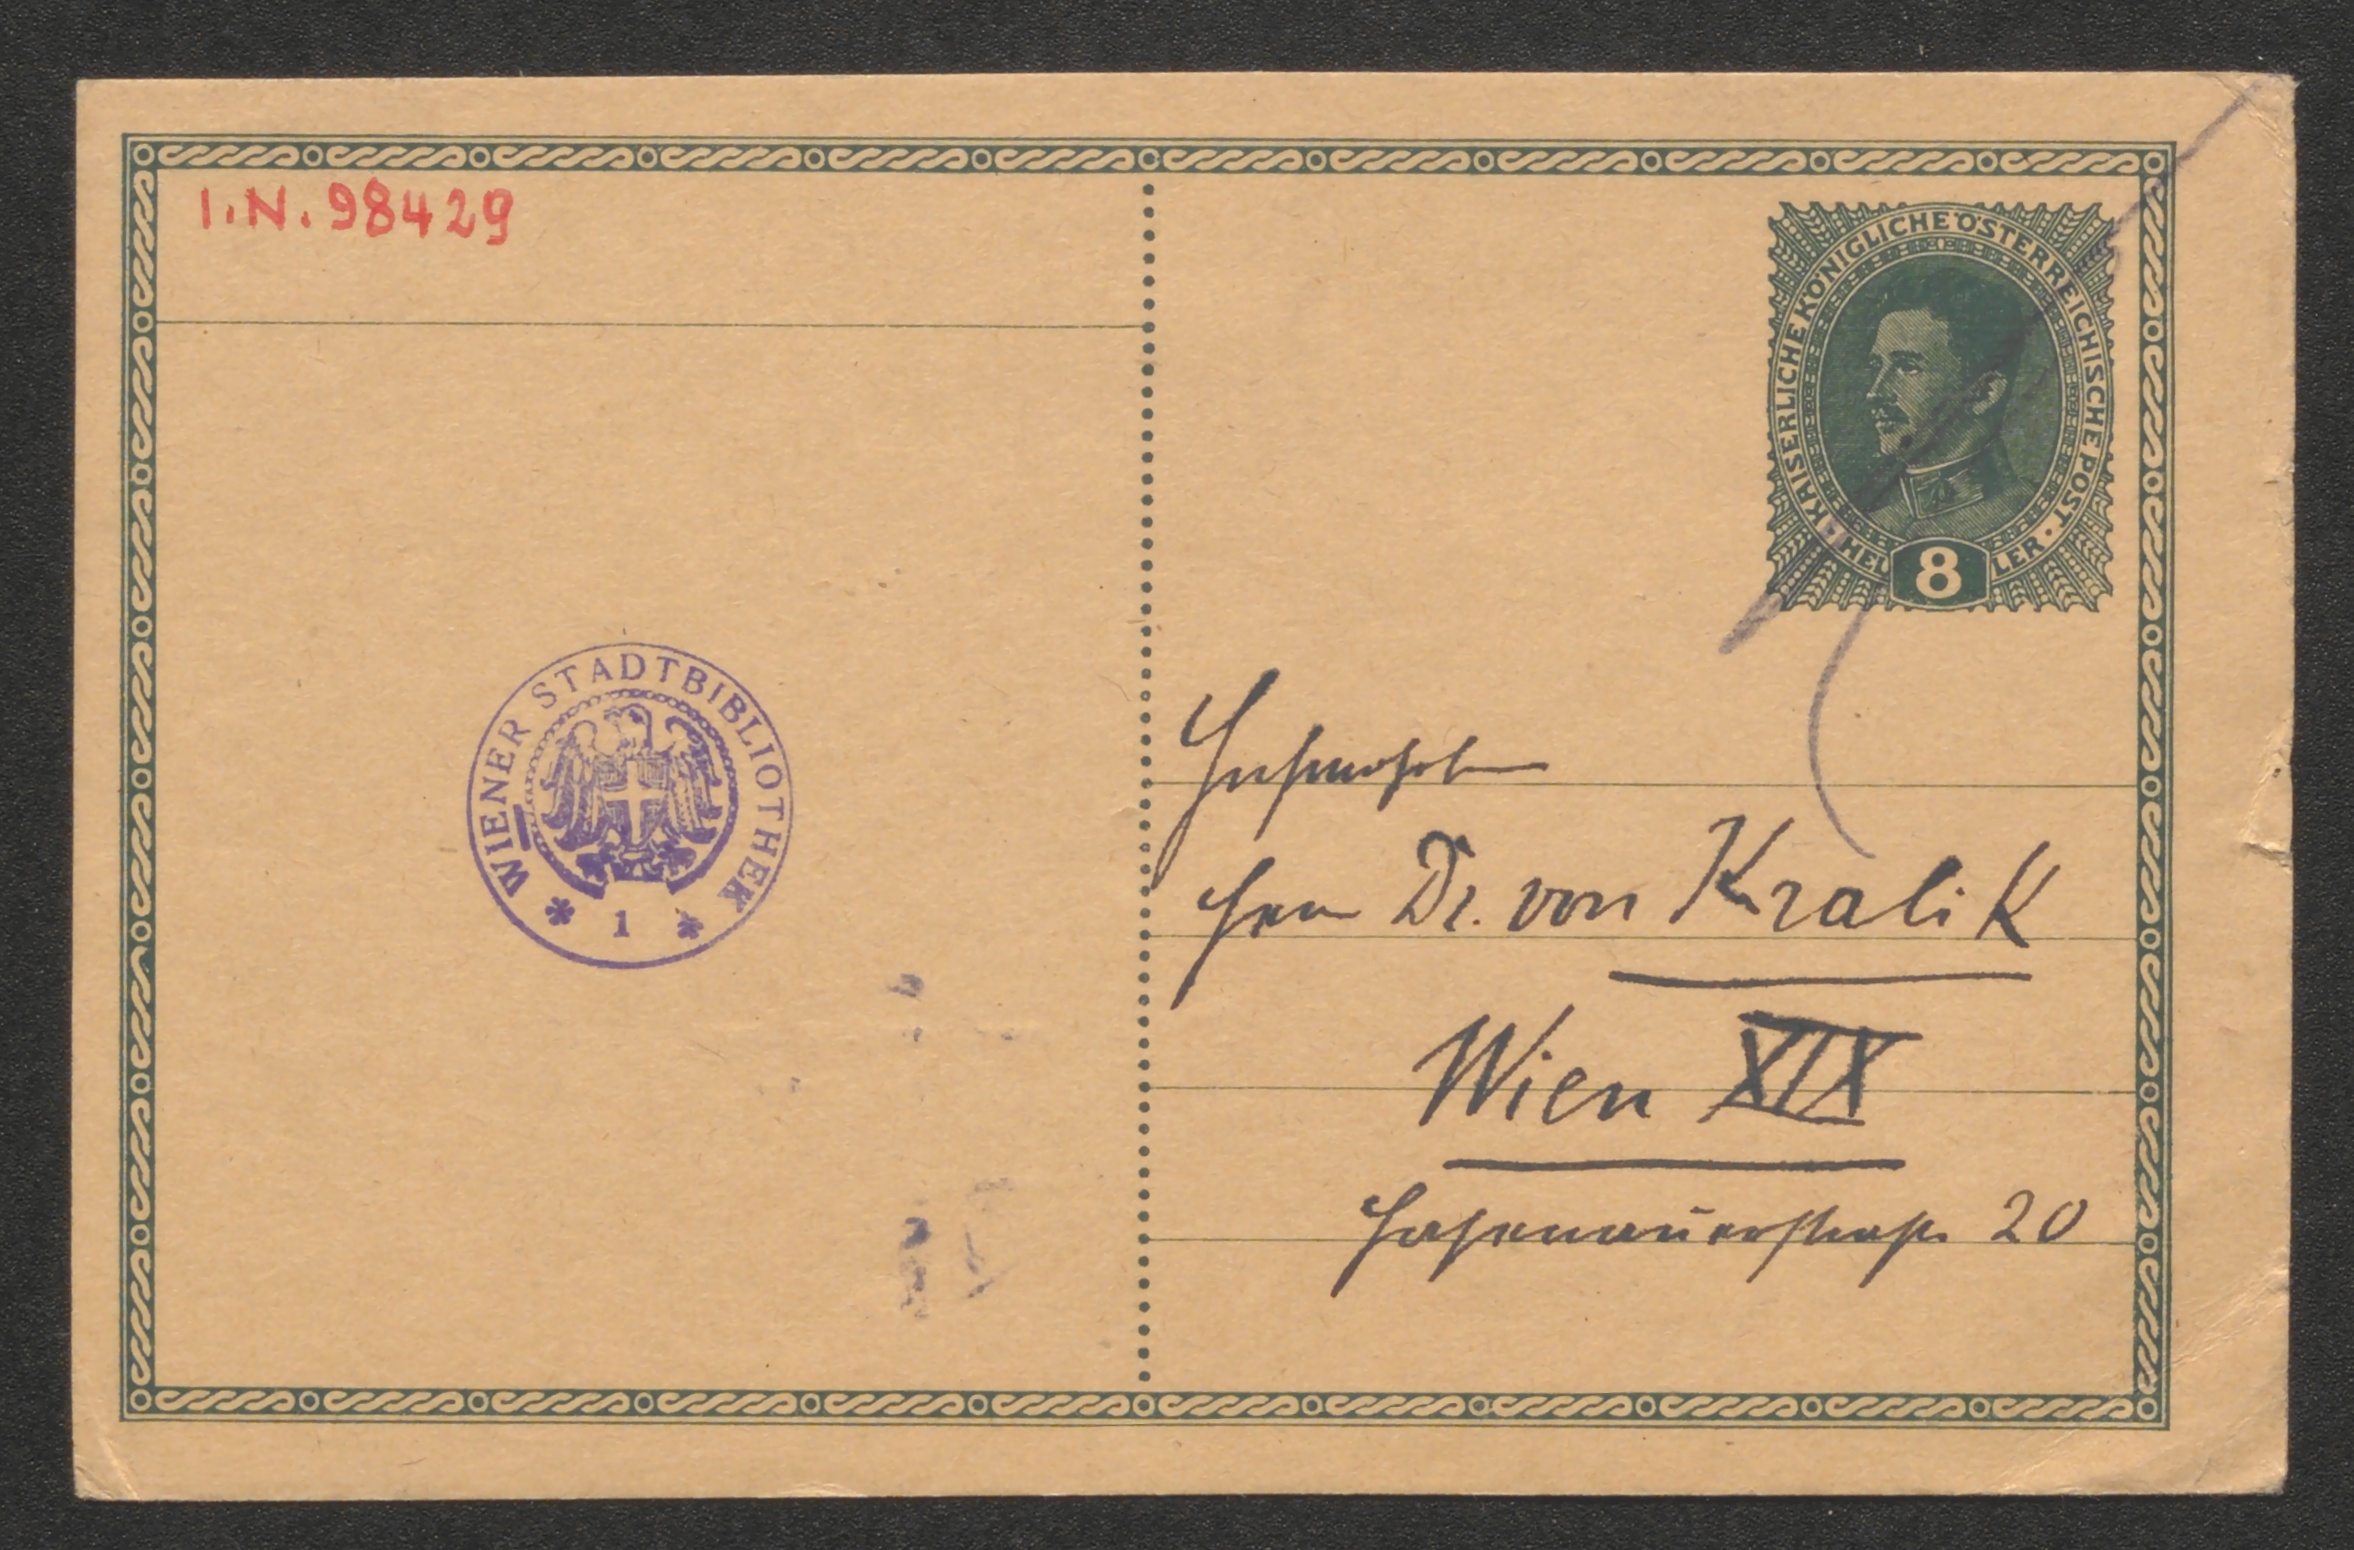 I.N. 98429
KAISERLICHE KÖNIGLICHE ÖSTERREICHISCHE POST
HELLER
8
WIENER STADTBIBLIOTHEK
* 1 *
Hochwohlb
Herrn Dr. von Kralik
Wien XIX
Hasenauerstraße 20